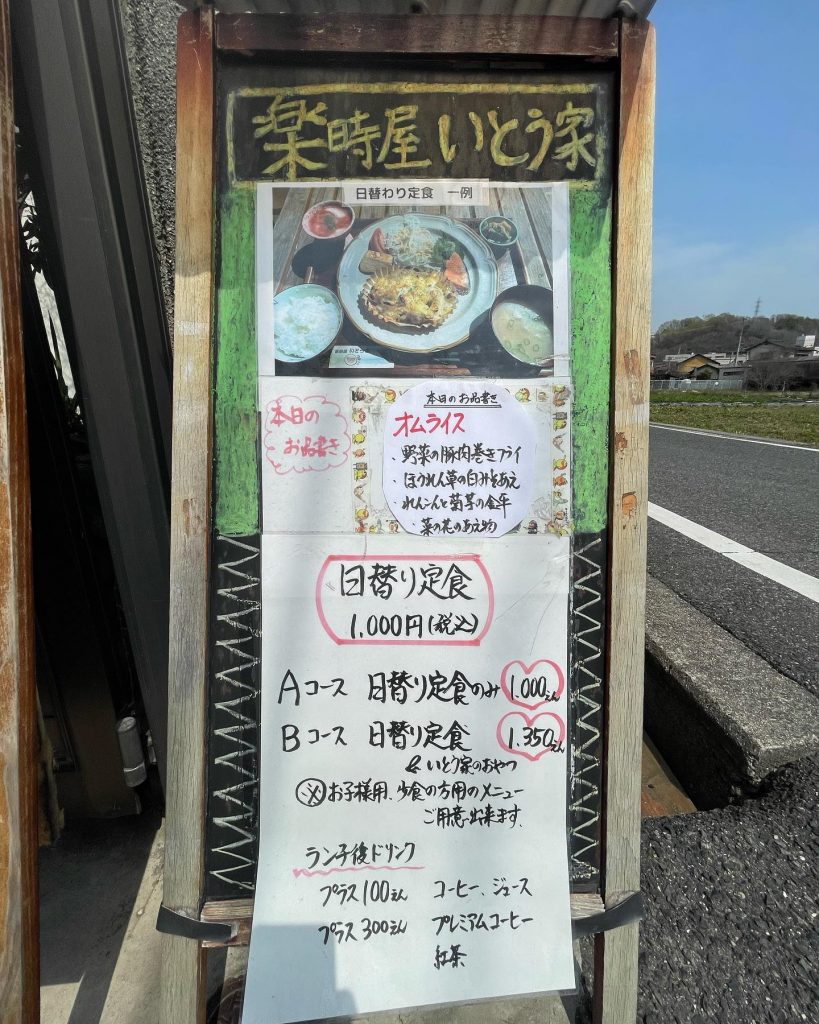 楽時屋 いとう家
日替わり定食 一例
本日の
お品書き
本日のお品書き
オムライス
・野菜の豚肉巻きフライ
・ほうれん草の白みそあえ
・れんこんと菊芋の金平
・菜の花のあえ物
日替り定食
1,000円(税込)
Aコース 日替り定食のみ 1.000えん
Bコース 日替り定食 1.350えん
& いとう家のおやつ
㋱お子様用、少食の方用のメニュー
ご用意出来ます。
ランチ後ドリンク
プラス100えん コーヒー、ジュース
プラス300えん プレミアムコーヒー
紅茶